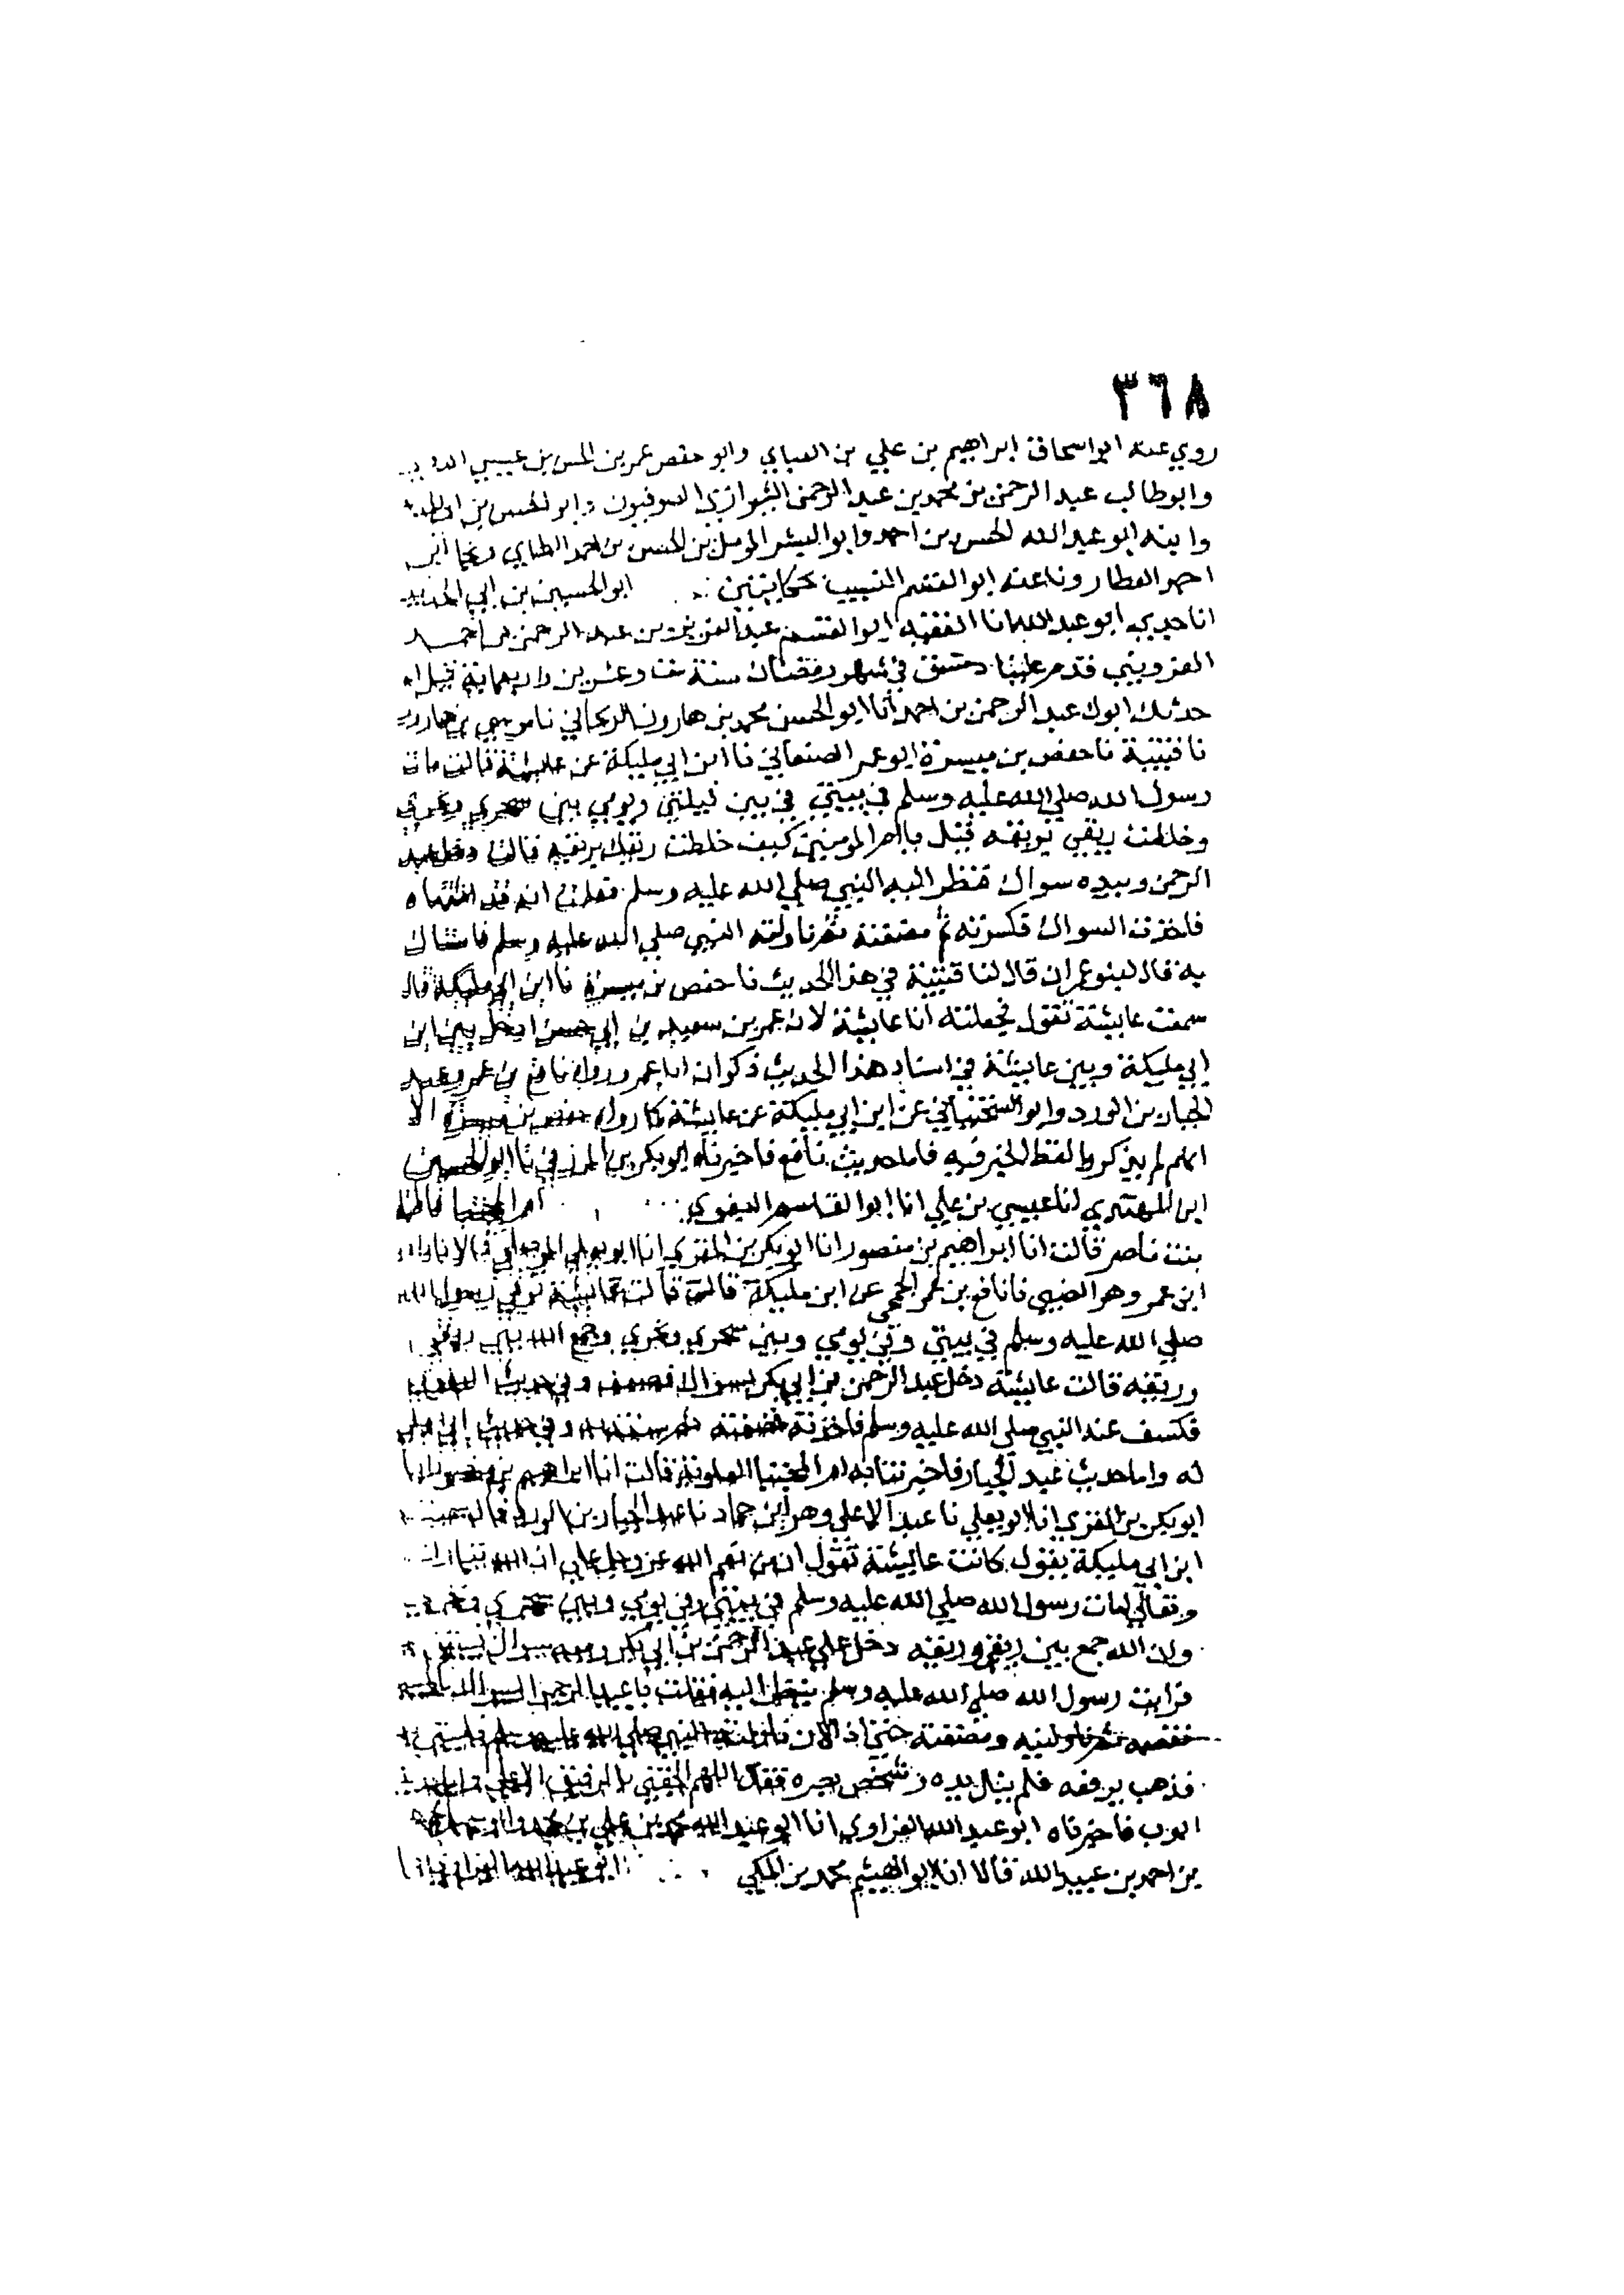 ٣٦٨
روي عنه ابو اسحاق ابراهيم بن علي بن العباي وابو حفص عمر بن الحسن بن عيسي
وابو طالب عبد الرحمن بن محمد بن عبد الرحمن الشيرازي الصوفيون وابو الحسن بن
وابنه ابو عبد الله الحسن بن احمد وابو اليسر المومل بن الحسن بن احمد الطباي ونجا بن
احمد العطار ونا عنه ابو القسم النسيب حكايتين ابو الحسين بن ابي الحديد
انا جدي ابو عبد الله انا الفقيه ابو القسم عبد العزيز بن عبد الرحمن بن احمد
القزويني قدم علينا دمشق في شهر رمضان سنة ست وعشرين واربعماية قيل له
حدثك ابوك عبد الرحمن بن احمد انا ابو الحسن محمد بن هارون الزنجاني نا موسي بن هارون
نا قتيبة نا حفص بن ميسرة ابو عمر الصنعاني نا ابن ابي مليكة عن عايشة قالت مات
رسول الله صلي الله عليه وسلم في بيتي في بين ليلتي ويومي بين سحري ونحري
وخلطت ريقي بريقه قيل يا ام المومنين كيف خلطت ريقك بريقه قالت دخل عبد
الرحمن وبيده سواك فنظر اليه النبي صلي الله عليه وسلم فظننت انه قد اشتهاه
فاخذت السواك فكسرته ثم مضغته ثم ناولته النبي صلي الله عليه وسلم فاستاك
به قال لنا ابو عمران قال لنا قتيبة في هذا الحديث نا حفص بن ميسرة نا ابن ابي مليكة قال
سمعت عايشة تقول فجعلته انا عايشة لان عمر بن سعيد بن ابي حسن ادخل بين ابن
ابي مليكة وبين عايشة في اسناد هذا الحديث ذكوان ابا عمر ورواه نافع بن عمر وعبد
الجبار بن الورد وابو السختياني عن ابن ابي مليكة عن عايشة كما رواه حفص بن ميسرة الا
انهم لم يذكروا لفظ الخبر فيه فاما حديث نافع فاخبرناه ابو بكر بن المزرفي نا ابو الحسين
ابن المهتدي انا عيسي بن علي انا ابو القاسم البغوي ام المجتبا فاطمة
بنت ناصر قالت انا ابراهيم بن منصور انا ابو بكر بن المقري انا ابو يعلي الموصلي قالا نا داود
ابن عمر وهو الضبي نا نافع بن عمر الجمحي عن ابن مليكة قالت قالت عايشة توفي رسول الله
صلي الله عليه وسلم في بيتي وفي يومي وبين سحري ونحري وجمع الله بين ريقي
وريقه قالت عايشة دخل عبد الرحمن بن ابي بكر بسواك فضعف وفي حديث البغوي
فكسف عنه النبي صلي الله عليه وسلم فاخذته فمضغته ثم سننته به وفي حديث ابي يعلي
له واما حديث عبد الجبار فاخبرتنا به ام المجتبا العلوية قالت انا ابراهيم بن منصور انا
ابو بكر بن المقري انا ابو يعلي نا عبد الاعلي وهو ابن حماد نا عبد الجبار بن الورد قال سمعت
ابن ابي مليكة يقول كانت عايشة تقول ان من نعم الله عز وجل علي ان الله تبارك
وتعالي امات رسول الله صلي الله عليه وسلم في بيتي وفي يومي وبين سحري ونحري
وان الله جمع بين ريقي وريقه دخل علي عبد الرحمن بن ابي بكر ومعه سواك يستن به
فرايت رسول الله صلي الله عليه وسلم ينظر اليه فقلت يا عبد الرحمن السواك
فقضمه ثم ناولنيه ومضغته حتي اذا لان ناولته النبي صلي الله عليه وسلم فاستن به
فذهب يرفعه فلم ينل يده وشخص بصره فقال اللهم الحقني بالرفيق الاعلي واما حديث
ايوب فاخبرناه ابو عبد الله الفراوي انا ابو عبد الله محمد بن علي بن محمد وابو سهل محمد
بن احمد بن عبيد الله قالا انا ابو الهيثم محمد بن المكي ابو عبد الله الفراوي انا